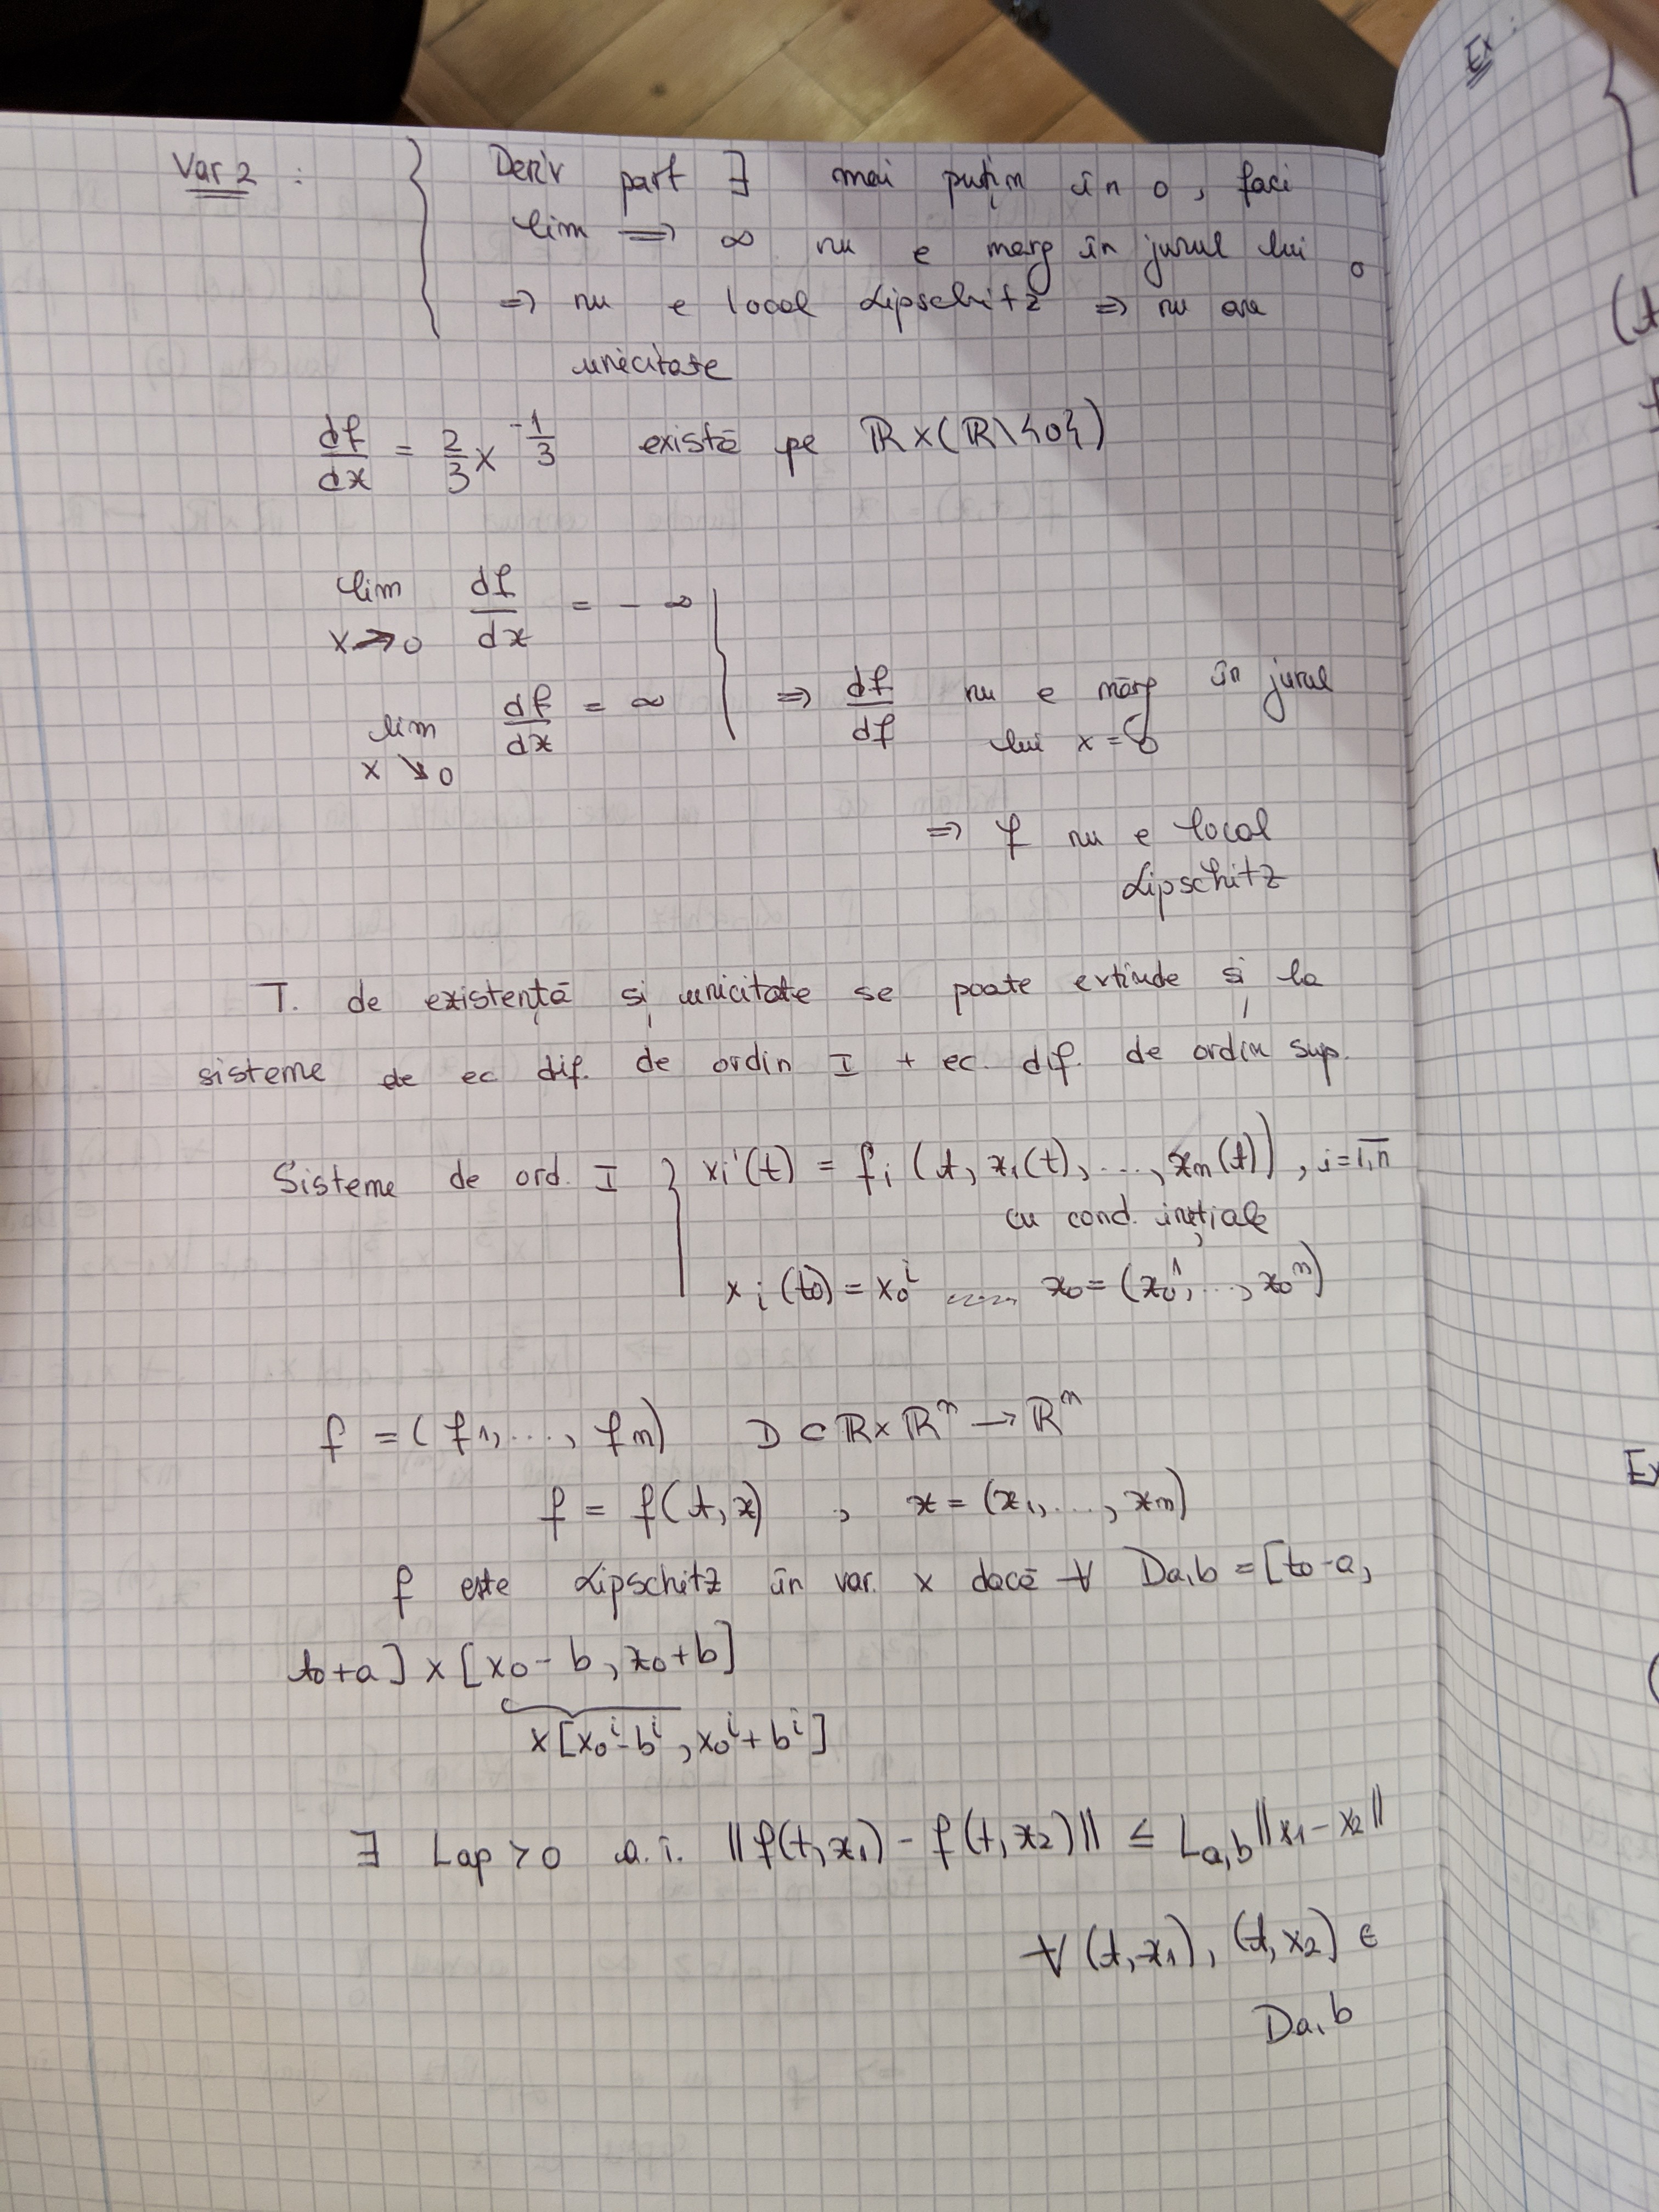 Var 2 : { Deriv part ∃ mai puțin în 0, faci
lim ⟹ ∞ nu e marg în jurul lui 0
⟹ nu e local Lipschitz ⟹ nu are
unicitate
df/dx = 2/3 x^(-1/3) există pe ℝ×(ℝ\{0})
lim x↗0 df/dx = -∞
lim x↘0 df/dx = ∞ } ⟹ df/df nu e mărg în jurul
lui x = 0
⟹ f nu e local
Lipschitz
T. de existență și unicitate se poate extinde și la
sisteme de ec dif. de ordin I + ec. dif. de ordin sup.
Sisteme de ord. I { xi'(t) = fi (t, x1(t), ..., xn(t)), i=1,n
cu cond. inițiale
xi (t0) = x0^i ..... x0 = (x0^1, ..., x0^n)
f = (f1, ..., fn) D ⊂ ℝ×ℝ^n → ℝ^n
f = f(t, x) , x = (x1, ..., xn)
f este Lipschitz în var. x dacă ∀ Da,b = [t0-a,
t0+a] × [x0-b, x0+b]
×[x0^i-b^i, x0^i+b^i]
∃ Lap > 0 a.î. ||f(t,x1) - f(t,x2)|| ≤ La,b ||x1-x2||
∀ (t,x1), (t,x2) ∈
Da,b
Ex :
(t
Ex